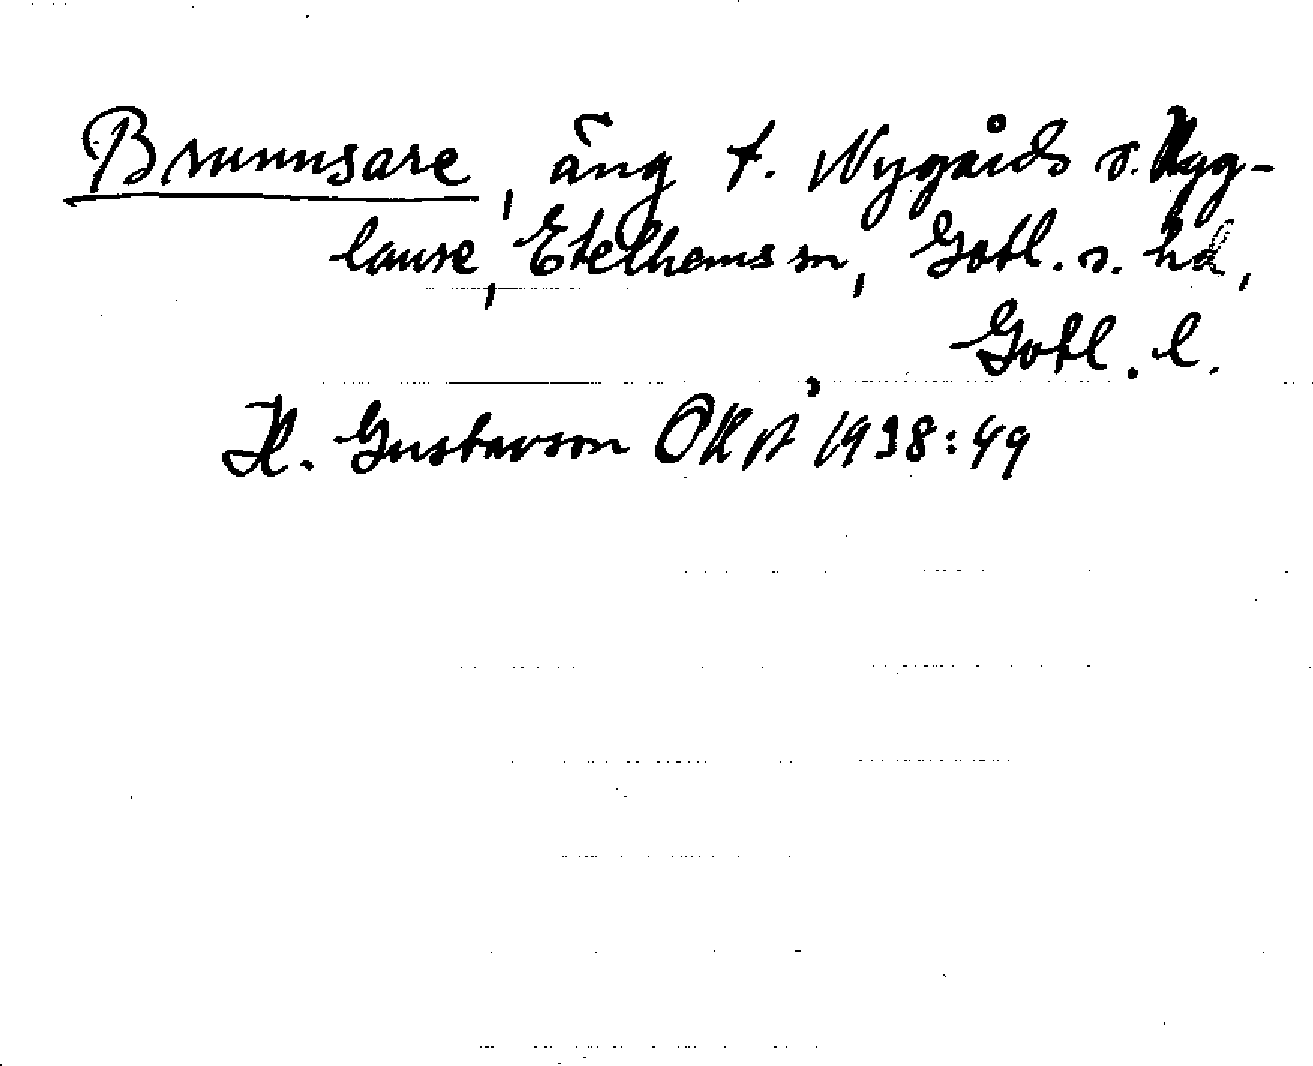 Brunnsare, äng t. Nygårds o. Hyg-
lause, Etelhems sn, Gotl. s. hd,
Gotl. l.
H. Gustavson 1938:49